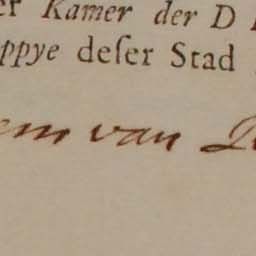 er Kamer der D
ppye deſer Stad
em van